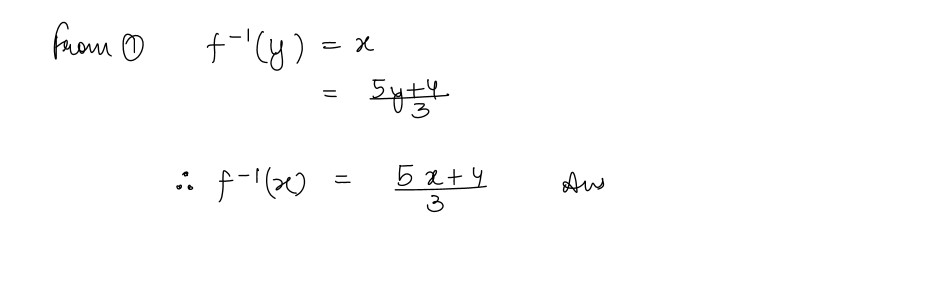 from ① f⁻¹(y) = x
= (5y+4)/3
∴ f⁻¹(x) = (5x+4)/3 Ans